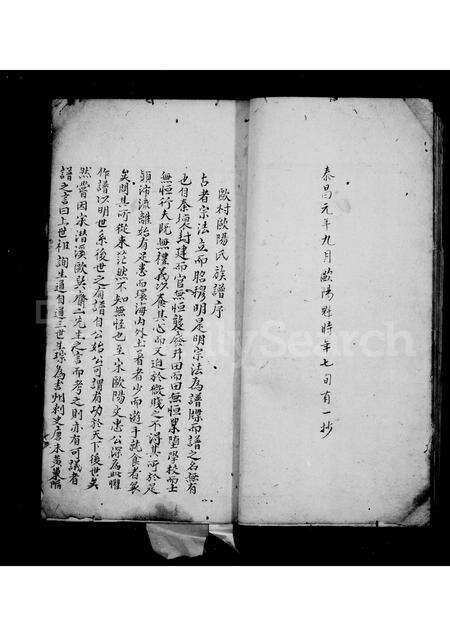 泰昌元年九月歐陽 時年七旬有一抄
歐村歐陽氏族譜序
古者宗法立而昭穆明是明宗法為譜牒而譜之名無有
也自秦壞封建而官無恒襲廢井田而田無恒業墮學校而士
無恒行夫既無禮義以養其心而又迫於微賤之不得其所於是
顛沛流離始有足焉而環海內外土著者少而遊手就食者衆
矣問其所從來茫然不知無怪也至宋歐陽文忠公深為此懼
作譜以明世系後世之有譜自公始公可謂有功於天下後世矣
然嘗因宋潛溪歐吳齋二先生之言而考之則亦有可議者
譜之言曰上世祖詢生通自通三世生琮為吉州刺史唐末黃巢陷